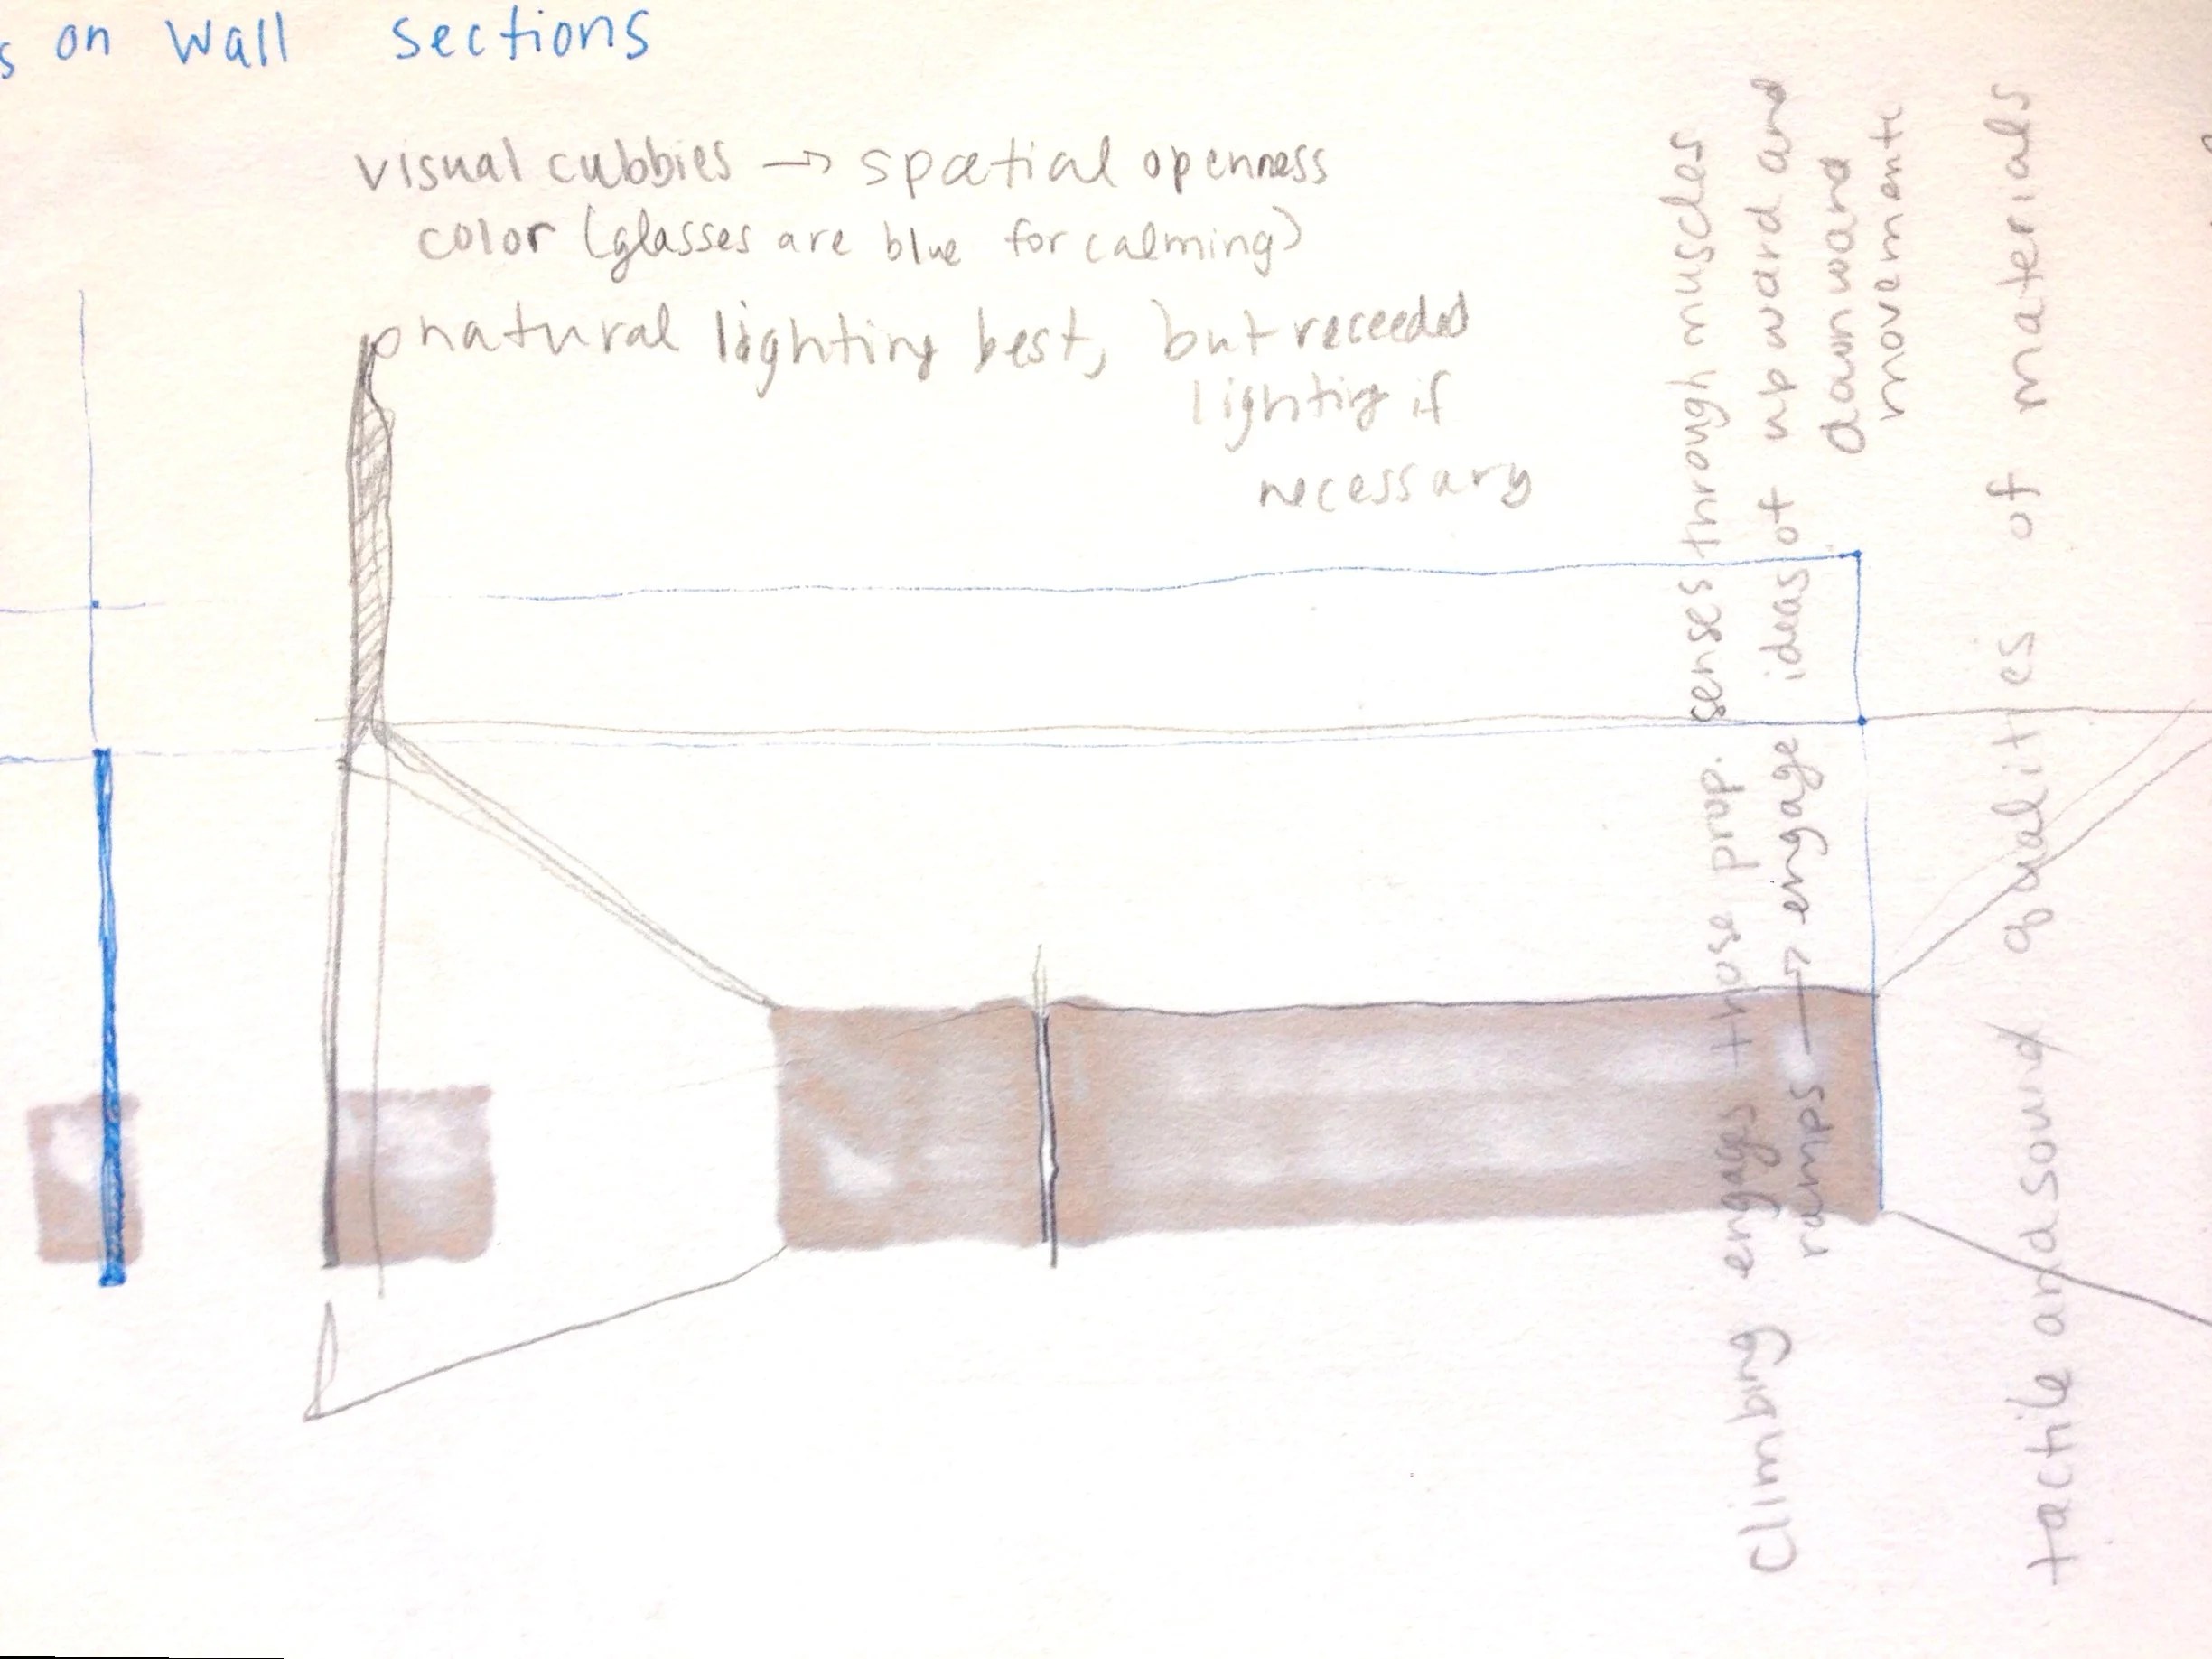 s on wall sections
visual cubbies → spatial openness
color (glasses are blue for calming)
natural lighting best, but receeded
lighting if
necessary
climbing engages those prop. senses through muscles
ramps → engage ideas of upward and
downward
movements
tactile and sound qualities of materials